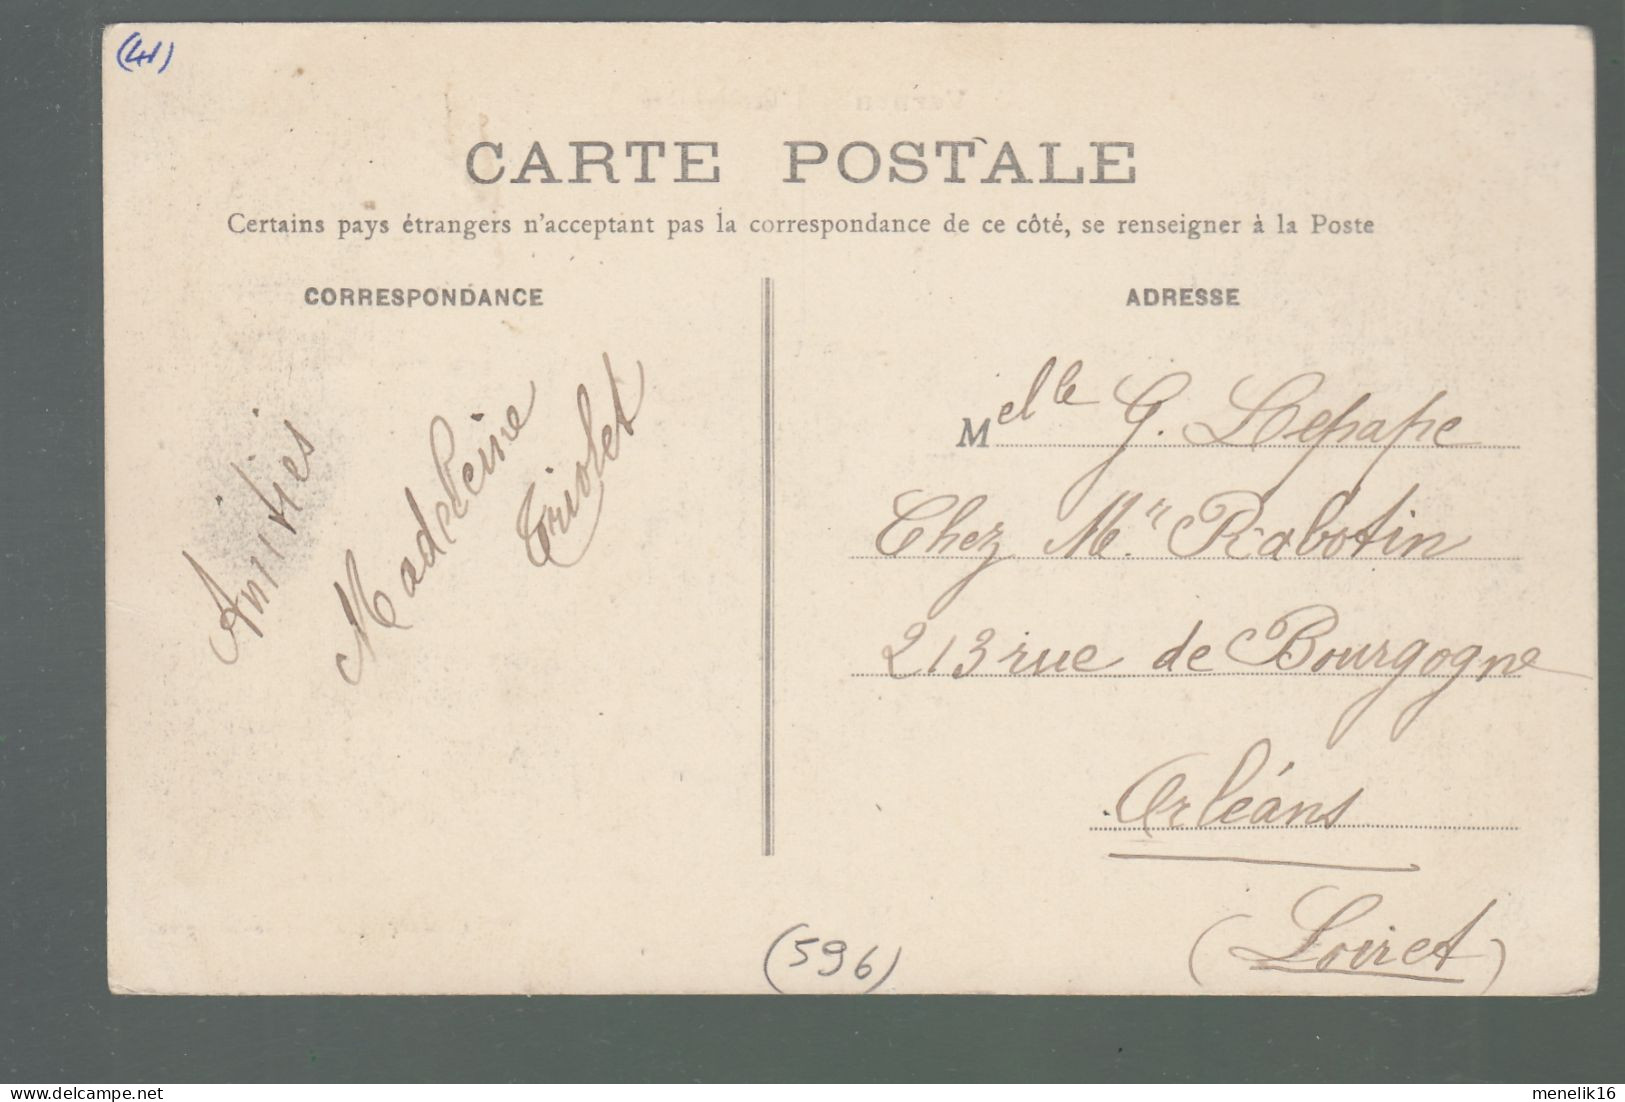 (41)
CARTE POSTALE
Certains pays étrangers n'acceptant pas la correspondance de ce côté, se renseigner à la Poste
CORRESPONDANCE
Amitiés
Madeleine
Triolet
ADRESSE
Melle G. Lepape
Chez Mr Rabotin
213 rue de Bourgogne
Orléans
(Loiret)
(596)
delcampe.net
menelik16